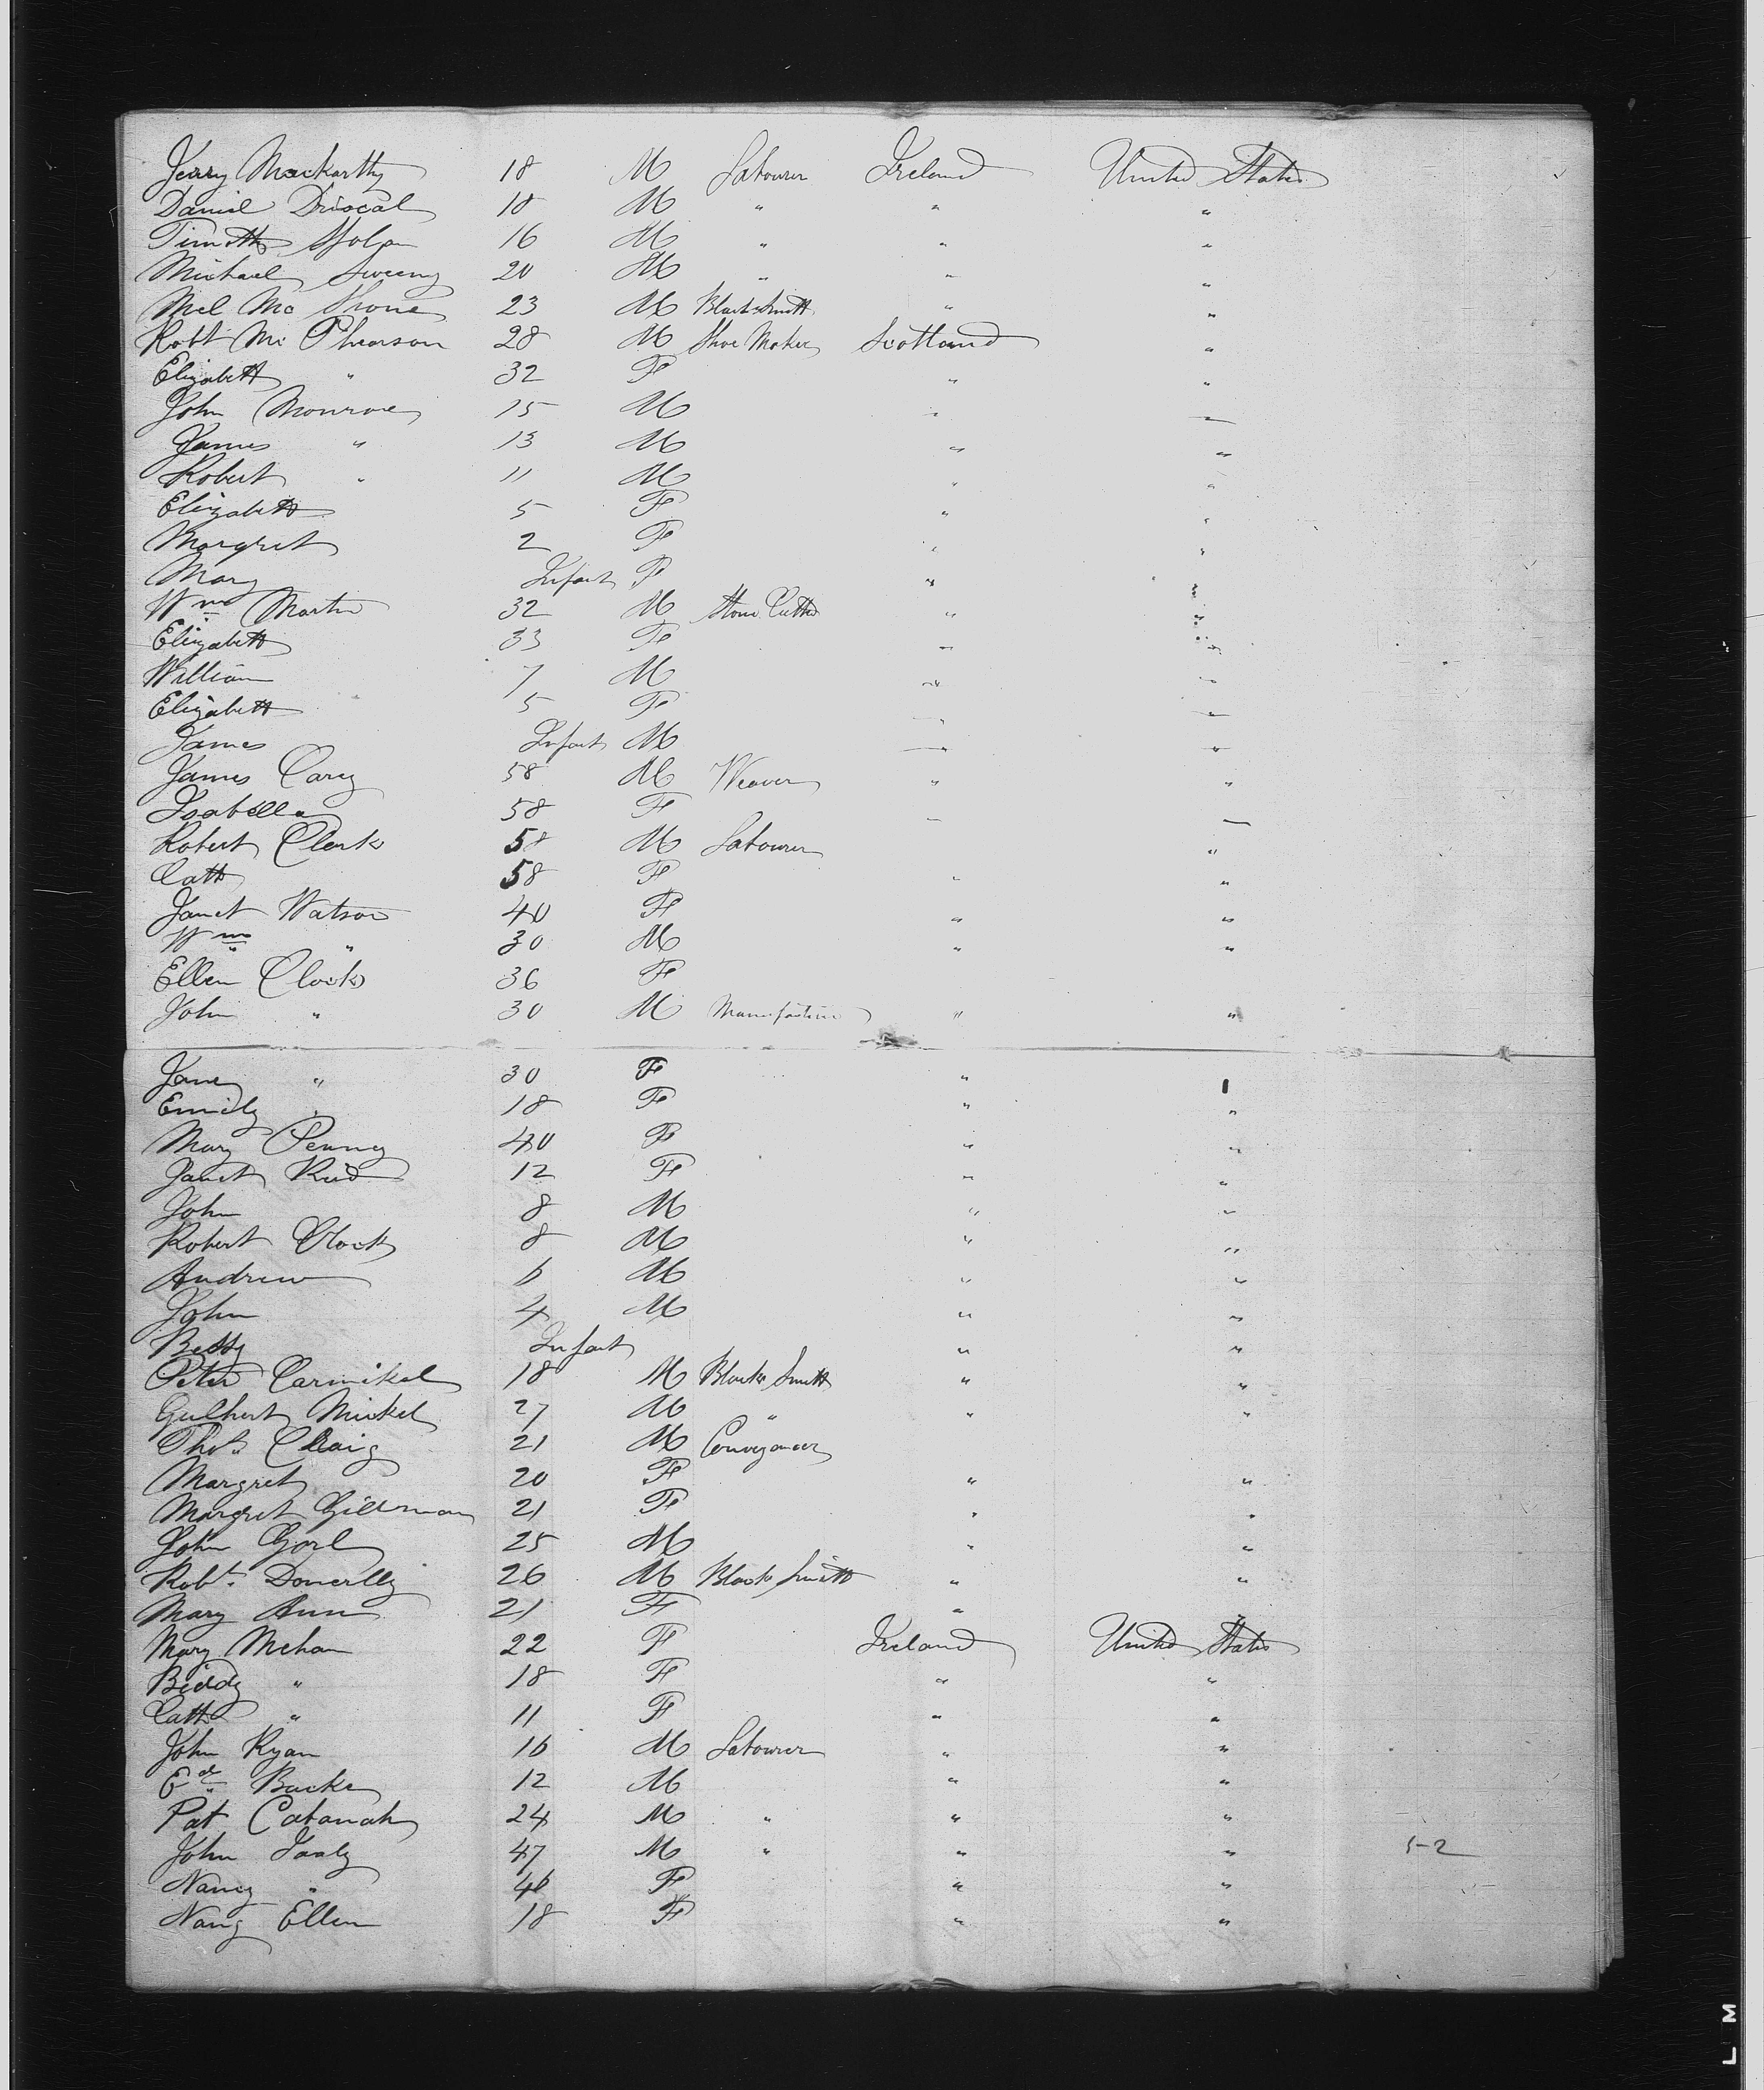 Jerry Mackarthy 18 M Labourer Ireland United States
Daniel Driscal 18 M " " "
Timoth 16 M " " "
Michael Sweeny 20 M " " "
Mcl Mc Shone 23 M Blacksmith " "
Robt Mc Phearson 28 M Shoe Maker Scotland "
Elizabeth " 32 F " "
John Monroe 15 M " "
James " 13 M " "
Robert " 11 M " "
Elizabeth 5 F " "
Margret 2 F " "
Mary Infant F " "
Wm Martin 32 M Stone Cutter " "
Elizabeth 33 F " "
William 7 M " "
Elizabeth 5 F " "
James Infant M " "
James Cary 58 M Weaver " "
Isabella 58 F " "
Robert Clark 58 M Labourer "
Cath 58 F " "
Janet Watson 40 F " "
Wm " 30 M " "
Ellen Clock 36 F
John " 30 M Manufacturer " "
Jane " 30 F " "
Emily " 18 F " "
Mary Penny 40 F " "
Janet Reid 12 F " "
John 8 M " "
Robert Clock 8 M " "
Andrew 6 M " "
John 4 M " "
Betsy Infant " "
Peter Carmikel 18 M Black Smith " "
Gilbert Mickel 27 M " " "
Thos Craig 21 M Conveyancer
Margret 20 F " "
Margret Gillman 21 F " "
John Gorl 25 M " "
Robt. Donerlly 26 M Black Smith " "
Mary Ann 21 F " "
Mary Mehan 22 F Ireland United States
Biddy " 18 F " "
Cath " 11 F " "
John Ryan 16 M Labourer " "
Ed Burke 12 M " "
Pat Cabanah 24 M " " "
John Taaly 47 M " " " 52
Nancy " 46 F " "
Nancy Ellen 18 F " "